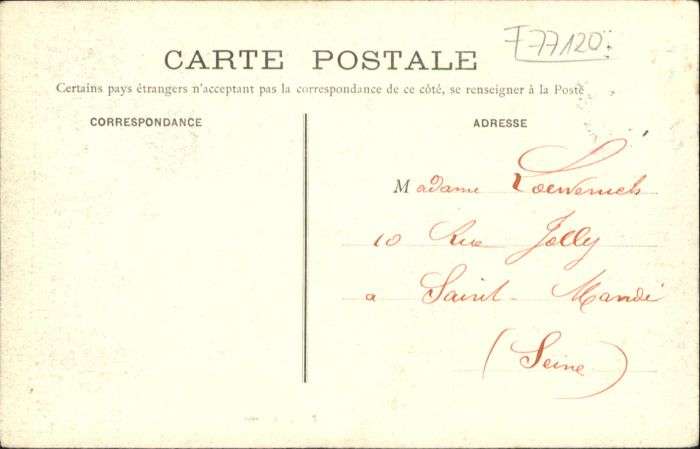 F77120
CARTE POSTALE
Certains pays étrangers n'acceptant pas la correspondance de ce côté, se renseigner à la Poste
CORRESPONDANCE
ADRESSE
Madame
10 Rue Jolly
a Saint-Mandé
(Seine)